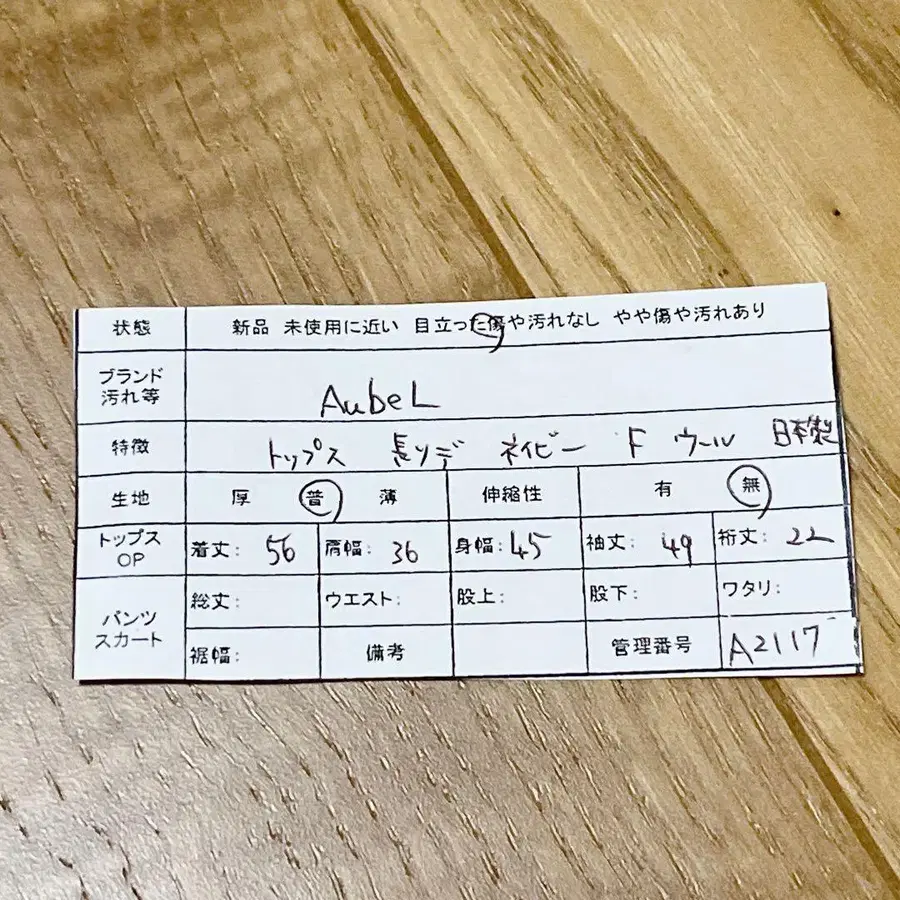 状態 新品 未使用に近い 目立った傷や汚れなし やや傷や汚れあり
ブランド
汚れ等
AubeL
特徴 トップス 長ソデ ネイビー F ウール 日本製
生地 厚 普 薄 伸縮性 有 無
トップス
OP
着丈: 56 肩幅: 36 身幅: 45 袖丈: 49 裄丈: 22
パンツ
スカート
総丈: ウエスト: 股上: 股下: ワタリ:
裾幅: 備考 管理番号 A2117